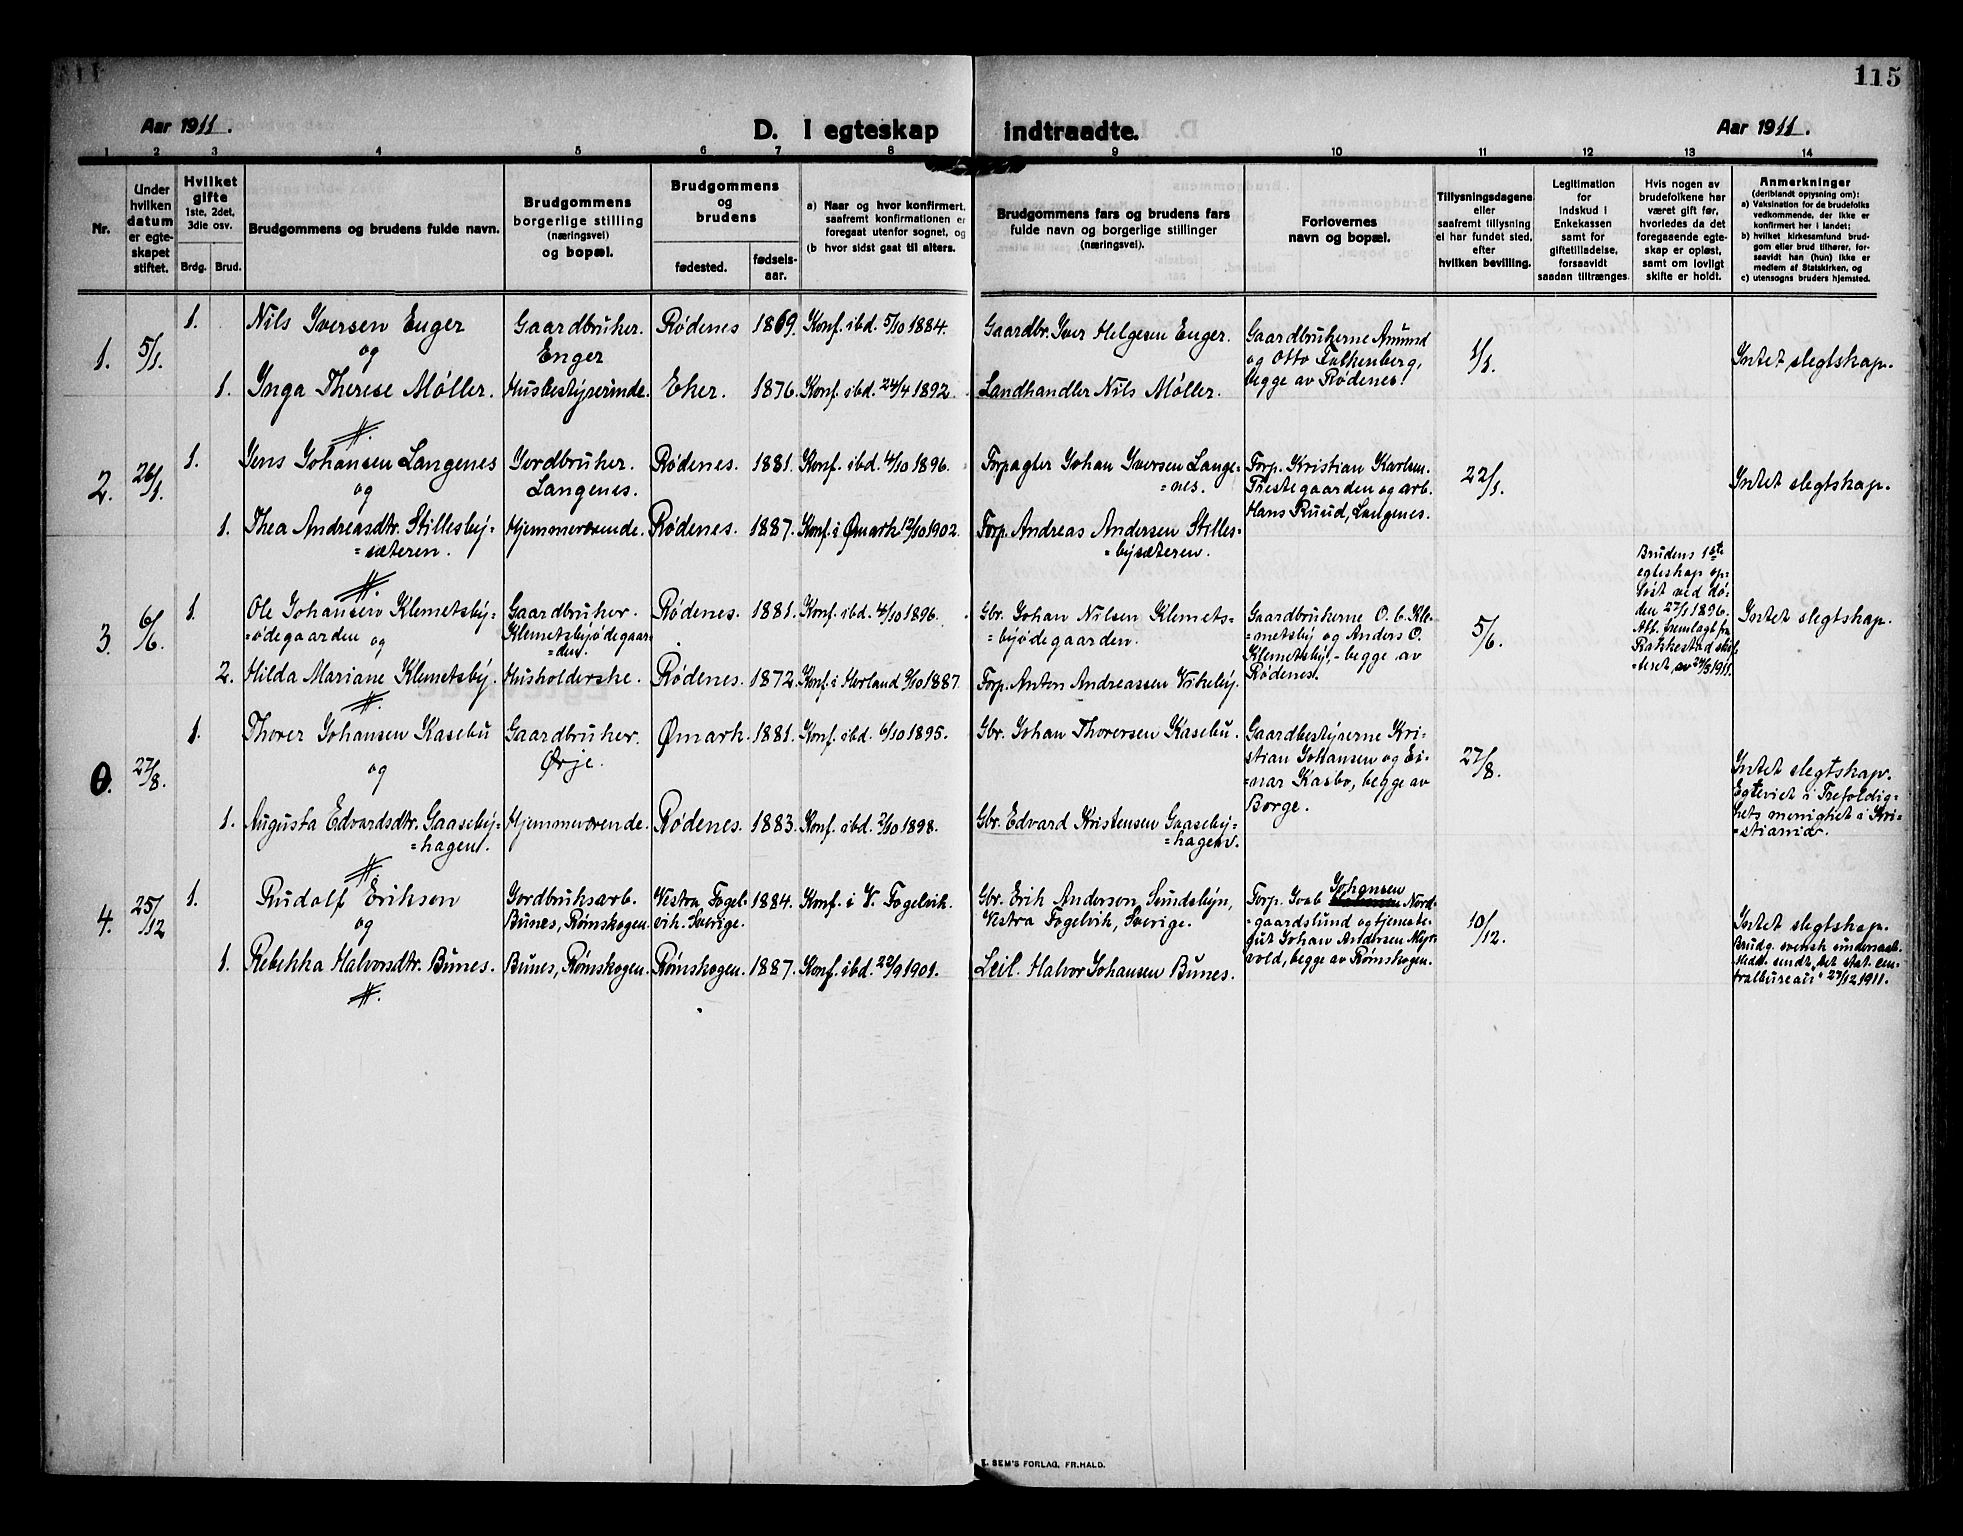 115
Aar 1911.
D. I egteskap
indtraadte.
Aar 1911.
1 2 3 4 5 6 7 8 9 10 11 12 13 14
Nr.
Under
hvilken
datum
er egte-
skapet
stiftet.
Hvilket
gifte
1ste, 2det,
3die osv.
Brdg. Brud.
Brudgommens og brudens fulde navn.
Brudgommens
borgerlige stilling
(næringsvei)
og bopæl.
Brudgommens
og
brudens
fødested.
fødsels-
aar.
a) Naar og hvor konfirmert,
saafremt konfirmationen er
foregaat utenfor sognet, og
(b hvor sidst gaat til alters.
Brudgommens fars og brudens fars
fulde navn og borgerlige stillinger
(næringsvei).
Forlovernes
navn og bopæl.
Tillysningsdagene
eller
saafremt tillysning
ei har fundet sted,
efter
hvilken bevilling.
Legitimation
for
indskud i
Enkekassen
samt for
giftetilladelse,
forsaavidt
saadan tiltrænges.
Hvis nogen av
brudefolkene har
været gift før,
hvorledes da det
foregaaende egte-
skap er opløst,
samt om lovligt
skifte er holdt.
Anmerkninger
(deriblandt opysning om):
a) Vaksination for de brudefolks
vedkommende, der ikke er
konfirmert her i landet;
b) hvilket kirkesamfund brud-
gom eller brud tilhører, for-
saavidt han (hun) ikke er
medlem af Statskirken, og
c) utensogns bruders hjemsted.
1. 5/1.
1. Nils Iversen Enger
og
1. Inga Therese Møller.
Gaardbruker.
Enger
Husbestyrerinde.
Rødenes 1869. Konf. ibd. 5/10 1884.
Eker. 1876. Konf. ibd. 24/4 1892.
Gaardbr. Iver Helgesen Enger.
Landhandler Nils Møller.
Gaardbrukerne Amund
og Otto Falkenberg,
begge av Rødenes.
1/1.
Intet slegtskap.
2. 26/1.
1. Jens Johansen Langenes
og
1. Thea Andreasdtr. Stillesby-
=sæteren.
Jordbruker.
Langenes.
Hjemmeværende.
Rødenes. 1881. Konf. ibd. 4/10 1896.
Rødenes. 1887. Konf. i Ømark 12/10 1902.
Forpagter Johan Iversen Lange-
=nes.
Forp. Andreas Andersen Stilles-
=bysæteren.
Forp. Kristian Karlsen
Prestegaarden og arb.
Hans Ruud, Langenes.
22/1.
Intet slegtskap.
3. 6/6.
1. Ole Johansen Klemetsby-
=ødegaarden og
2. Hilda Mariane Klemetsby.
Gaardbruker.
Klemetsbyødegaar-
=den.
Husholderske.
Rødenes. 1881. Konf. ibd. 4/10 1896.
Rødenes. 1872. Konf. i Herland 9/10 1887.
Gbr. Johan Nilsen Klemets-
=byødegaarden.
Forp. Anton Andreassen Vikeby.
Gaardbrukerne O. C. Kle-
=metsby og Anders O.
Klemetsby, - begge av
Rødenes.
5/6.
Brudens 1ste
egteskap op-
løst ved dø-
den 27/1 1896.
Att. fremlagt fra
Rakkestad skif-
teret av 24/5 1911.
Intet slegtskap.
0. 27/8.
1. Thorer Johansen Kasebu
og
1. Augusta Edvardsdtr. Gaaseby-
=hagen.
Gaardbruker.
Ørje.
Hjemmeværende.
Ømark. 1881. Konf. ibd. 6/10 1895.
Rødenes. 1883. Konf. ibd. 2/10 1898.
Gbr. Johan Thoresen Kasebu.
Gbr. Edvard Kristensen Gaaseby-
=hagen.
Gaardbestyrerne Kri-
stian Johansen og Ei-
=nar Kasbo, begge av
Borge.
27/8.
Intet slegtskap.
Egteviet i Trefoldig-
hets menighet i Kri-
=stiania.
4. 25/12
1. Rudolf Eriksen
og
1. Rebekka Halvorsdtr. Bunes.
Jordbruksarb.
Bunes, Rømskogen.
Bunes, Rømskogen.
Vestra Fogel-
vik. Sverige. 1884. Konf. i V. Fogelvik.
Rømskogen. 1887. Konf. ibd. 22/9 1901.
Gbr. Erik Anderson Sundsbyn,
Vestra Fogelvik, Sverige.
Leil. Halvor Johansen Bunes.
Johansen
Forp. Joab Nord-
=gaardslund og tjeneste-
gut Johan Andersen Myr-
vold, begge av Rømskogen.
10/12.
Intet slegtskap.
Brudg. svensk undersaat.
Medd. sendt "Det stat. cen-
tralbureau" 27/12 1911.
E. SEM'S FORLAG, FR.HALD.